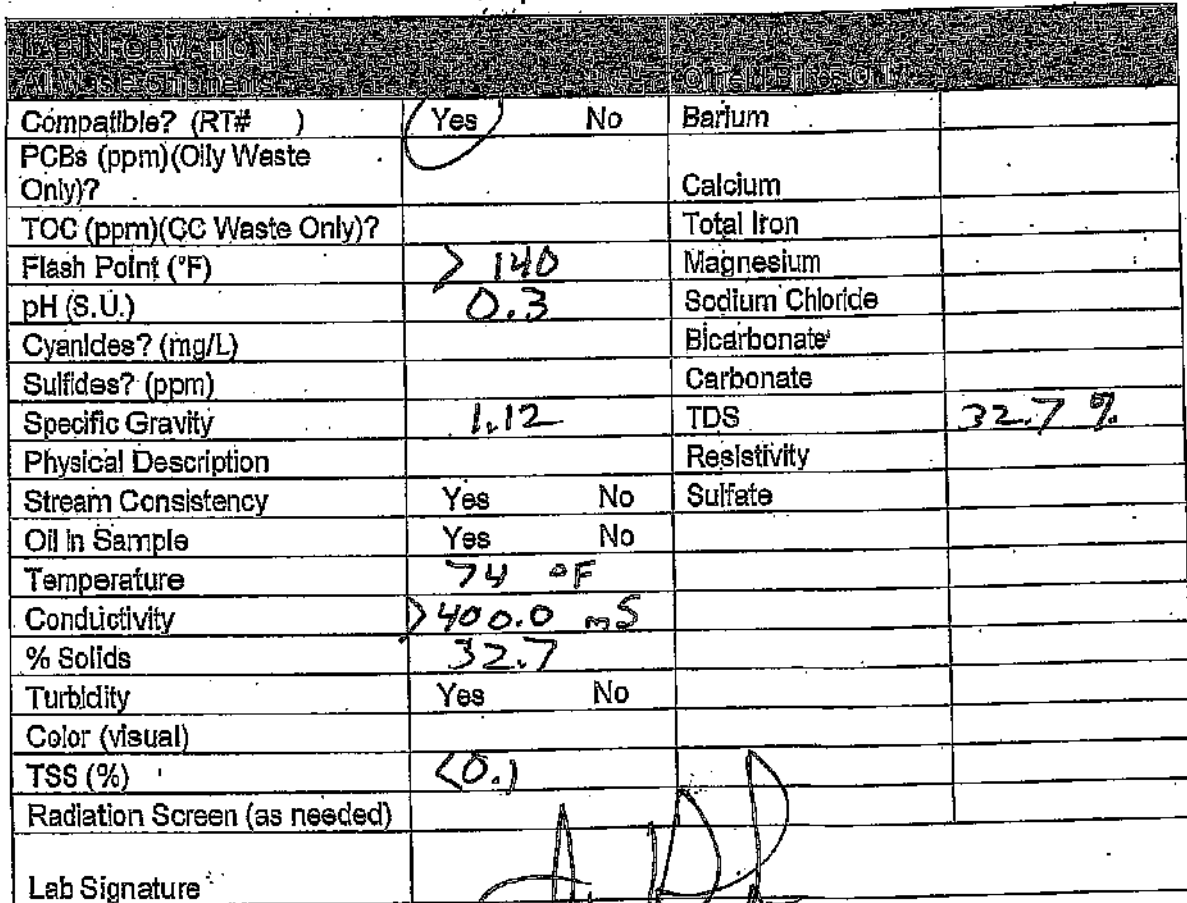 LAB INFORMATION
All Waste Shipments
Compatible? (RT# ) Yes No Barium
PCBs (ppm)(Oily Waste
Only)? Calcium
TOC (ppm)(CC Waste Only)? Total Iron
Flash Point (°F) > 140 Magnesium
pH (S.U.) 0.3 Sodium Chloride
Cyanides? (mg/L) Bicarbonate
Sulfides? (ppm) Carbonate
Specific Gravity 1.12 TDS 32.7 %
Physical Description Resistivity
Stream Consistency Yes No Sulfate
Oil in Sample Yes No
Temperature 74 °F
Conductivity >400.0 mS
% Solids 32.7
Turbidity Yes No
Color (visual)
TSS (%) <0.1
Radiation Screen (as needed)
Lab Signature